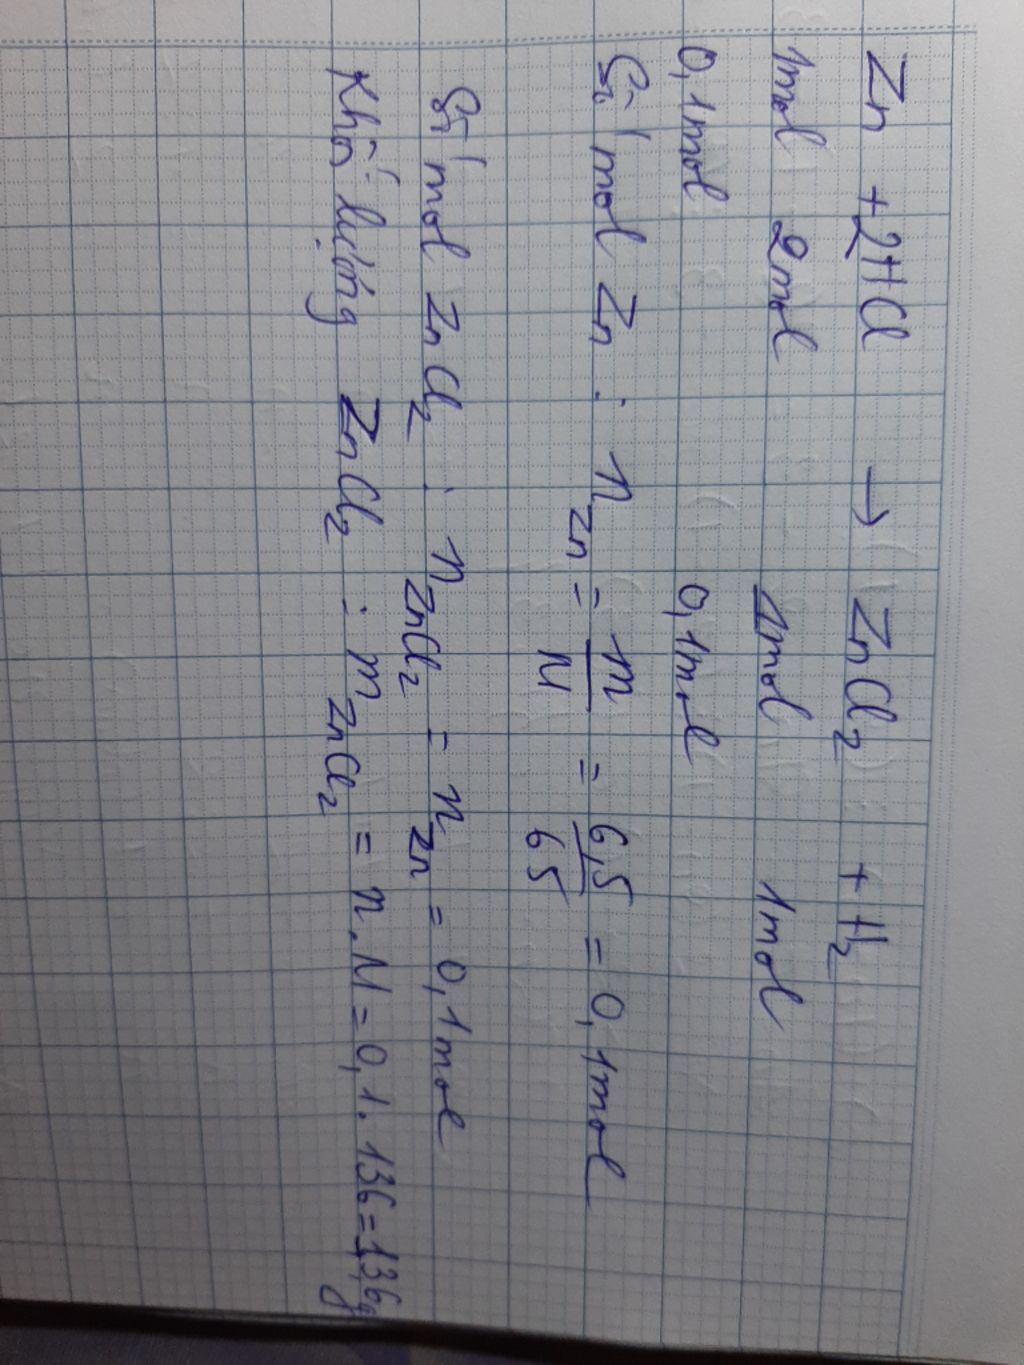 Zn + 2HCl → ZnCl₂ + H₂
1mol 2mol 1mol 1mol
0,1mol 0,1mol
Số mol Zn : n_Zn = m/M = 6,5/65 = 0,1mol
Số mol ZnCl₂ : n_ZnCl₂ = n_Zn = 0,1mol
Khối lượng ZnCl₂ : m_ZnCl₂ = n.M = 0,1.136 = 13,6g